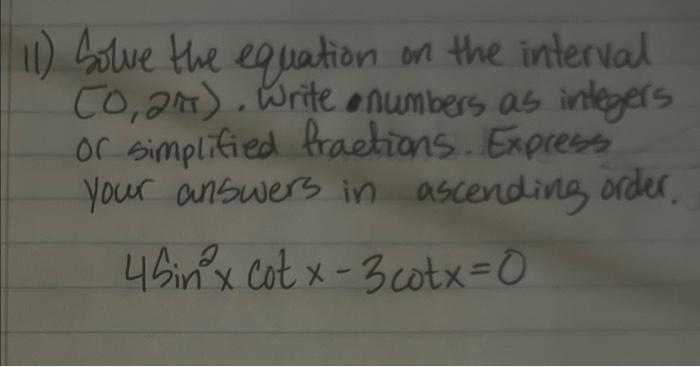 11) Solve the equation on the interval
[0, 2π). Write numbers as integers
or simplified fractions. Express
your answers in ascending order.
4 Sin²x cot x - 3 cot x = 0